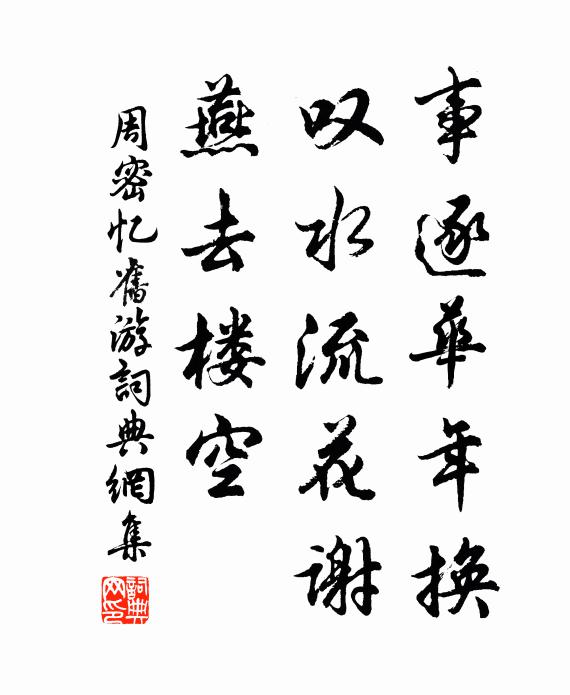 事逐华年换
叹水流花谢
燕去楼空
周密忆旧游詞典網集
詞典网印